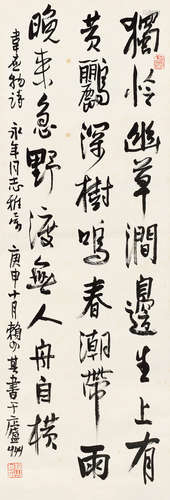 獨怜幽草澗邊生上有
黄鸝深樹鳴春潮帶雨
晚来急野渡無人舟自横
韋应物詩 永年同志雅屬 庚申十月賴少其書于廬州